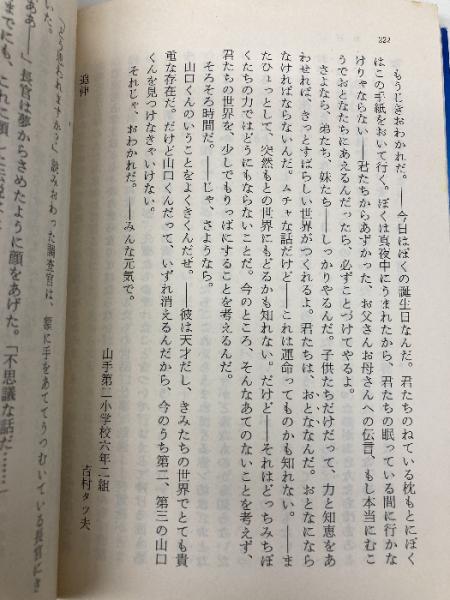 222
もうじきおわかれだ。――今日はぼくの誕生日なんだ。君たちのねている枕もとにぼく
はこの手紙をおいて行く。ぼくは真夜中にうまれたから、君たちの眠っている間に行かな
けりゃならない――君たちからあずかった、お父さんお母さんへの伝言、もし本当にむこ
うでおとなたちにあえるんだったら、必ずことづけてやるよ。
さよなら、弟たち、妹たち――しっかりやるんだ。子供たちだけだって、力と知恵をあ
わせれば、きっとすばらしい世界がつくれるよ。君たちは、おとななんだ。おとなになら
なければならないんだ。ムチャな話だけど――これは運命ってものかも知れない。――ま
たひょっとして、突然もとの世界にもどるかも知れない。だけど――それはどっちみちぼ
くたちの力ではどうにもならないことだ。今のところ、そんなあてのないことを考えず、
君たちの世界を、少しでもりっぱにすることを考えるんだ。
そろそろ時間だ。――じゃ、さようなら。
山口くんのいうことをよくきくんだぜ。――彼は天才だし、きみたちの世界でとても貴
重な存在だ。だけど山口くんだって、いずれ消えるんだから、今のうち第二、第三の山口
くんを見つけなきゃいけない。
それじゃ、おわかれだ。――みんな元気で。
山手第二小学校六年二組
吉村タツ夫
追伸
読みおわった調査官は、額に手をあててうつむいている長官にき
いた。
ああ――」長官は夢からさめたように顔をあげた。「不思議な話だ……」